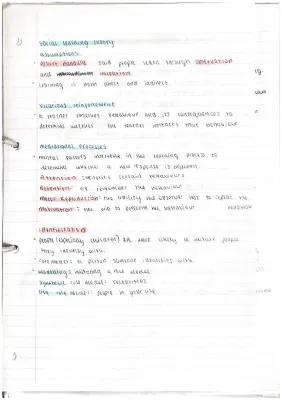 Social learning theory
assumptions
• Albert Bandura said people learn through observation
and imitation
• Learning is both direct and indirect.
Vicarious reinforcement
• a learner observes behaviour and its consequences to
determine whether the learner imitates that behaviour.
Mediational Processes
• mental factors intervene in the learning process to
determine whether a new response is acquired.
Attention: certain behaviours
Retention: remember the behaviour
Motor Reproduction: the ability the observer has to
Motivation: the will to perform the behaviour
Identification
• people (especially children) are more likely to imitate people
they identify with.
role model: a person someone identifies with.
• modelling: imitating a role model
Symbolic role model: celebrities
Live role model: people in your life